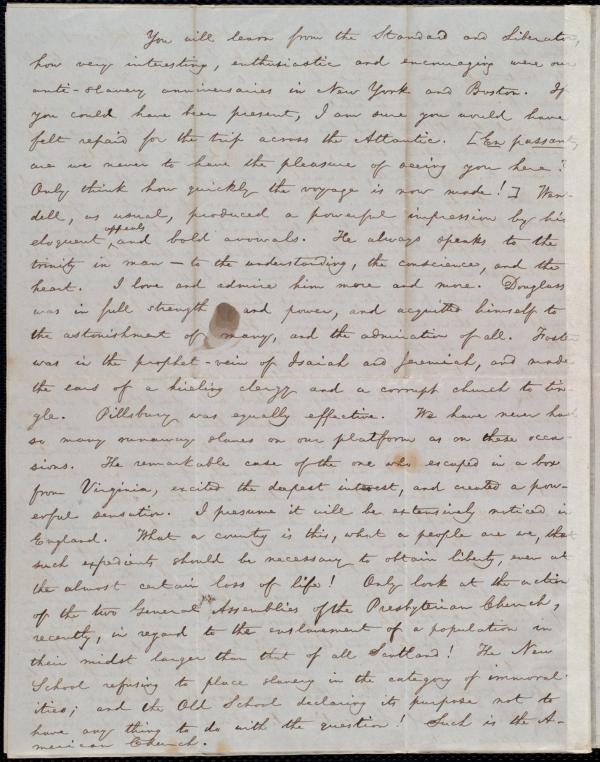 You will learn from the Standard and Liberator,
how very interesting, enthusiastic and encouraging were our
anti-slavery anniversaries in New York and Boston. If
you could have been present, I am sure you would have
felt repaid for the trip across the Atlantic. [En passant,
are we never to have the pleasure of seeing you here?
Only think how quickly the voyage is now made!] Wen-
dell, as usual, produced a powerful impression by his
eloquent appeals and bold avowals. He always speaks to the
trinity in man — to the understanding, the conscience, and the
heart. I love and admire him more and more. Douglass
was in full strength and power, and acquitted himself to
the astonishment of many, and the admiration of all. Foster
was in the prophet-vein of Isaiah and Jeremiah, and made
the ears of a hireling clergy and a corrupt church to tin-
gle. Pillsbury was equally effective. We have never had
so many runaway slaves on our platform as on these occa-
sions. The remarkable case of the one who escaped in a box
from Virginia, excited the deepest interest, and created a pow-
erful sensation. I presume it will be extensively noticed in
England. What a country is this, what a people are we, that
such expedients should be necessary to obtain liberty, even at
the almost certain loss of life! Only look at the action
of the two General Assemblies of the Presbyterian Church,
recently, in regard to the enslavement of a population in
their midst larger than that of all Scotland! The New
School refusing to place slavery in the category of immoral-
ities; and the Old School declaring its purpose not to
have any thing to do with the question! Such is the A-
merican Church.